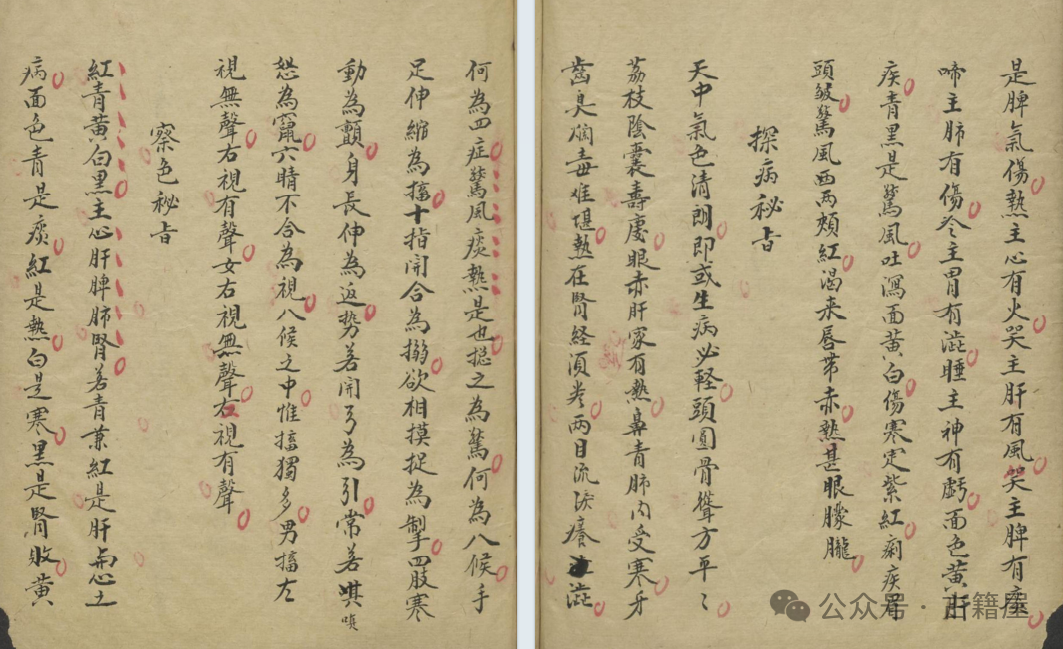 是脾氣傷熱主心有火哭主肝有風哭主脾有痰
啼主肺有傷冷主胃有澁睡主神有虧面色黃肝
疾青黑是驚風吐瀉面黃白傷寒定紫紅痢疾眉
頭皺驚風西兩頰紅渴来唇帶赤熱甚眼朦朧
探病秘旨
天中氣色清朗即或生病必輕頭圓骨聳方平〻
荔枝陰囊壽慶眼赤肝家有熱鼻青肺內受寒牙
齒臭爛毒難堪熱在腎経湏考兩目流淚癢澁
何為四症驚風痰熱是也揔之為驚何為八候手
足伸縮為搐十指開合為搦欲相摸捉為掣四肢寒
動為顫身長伸為返势若開弓為引常若哄嗔
怒為竄六睛不合為視八候之中惟搐獨多男搐左
視無聲右視有聲女右視無聲左視有聲
察色秘旨
紅青黃白黑主心肝脾肺腎若青兼紅是肝與心土
病面色青是痰紅是熱白是寒黑是腎敗黃
公众号·古籍屋